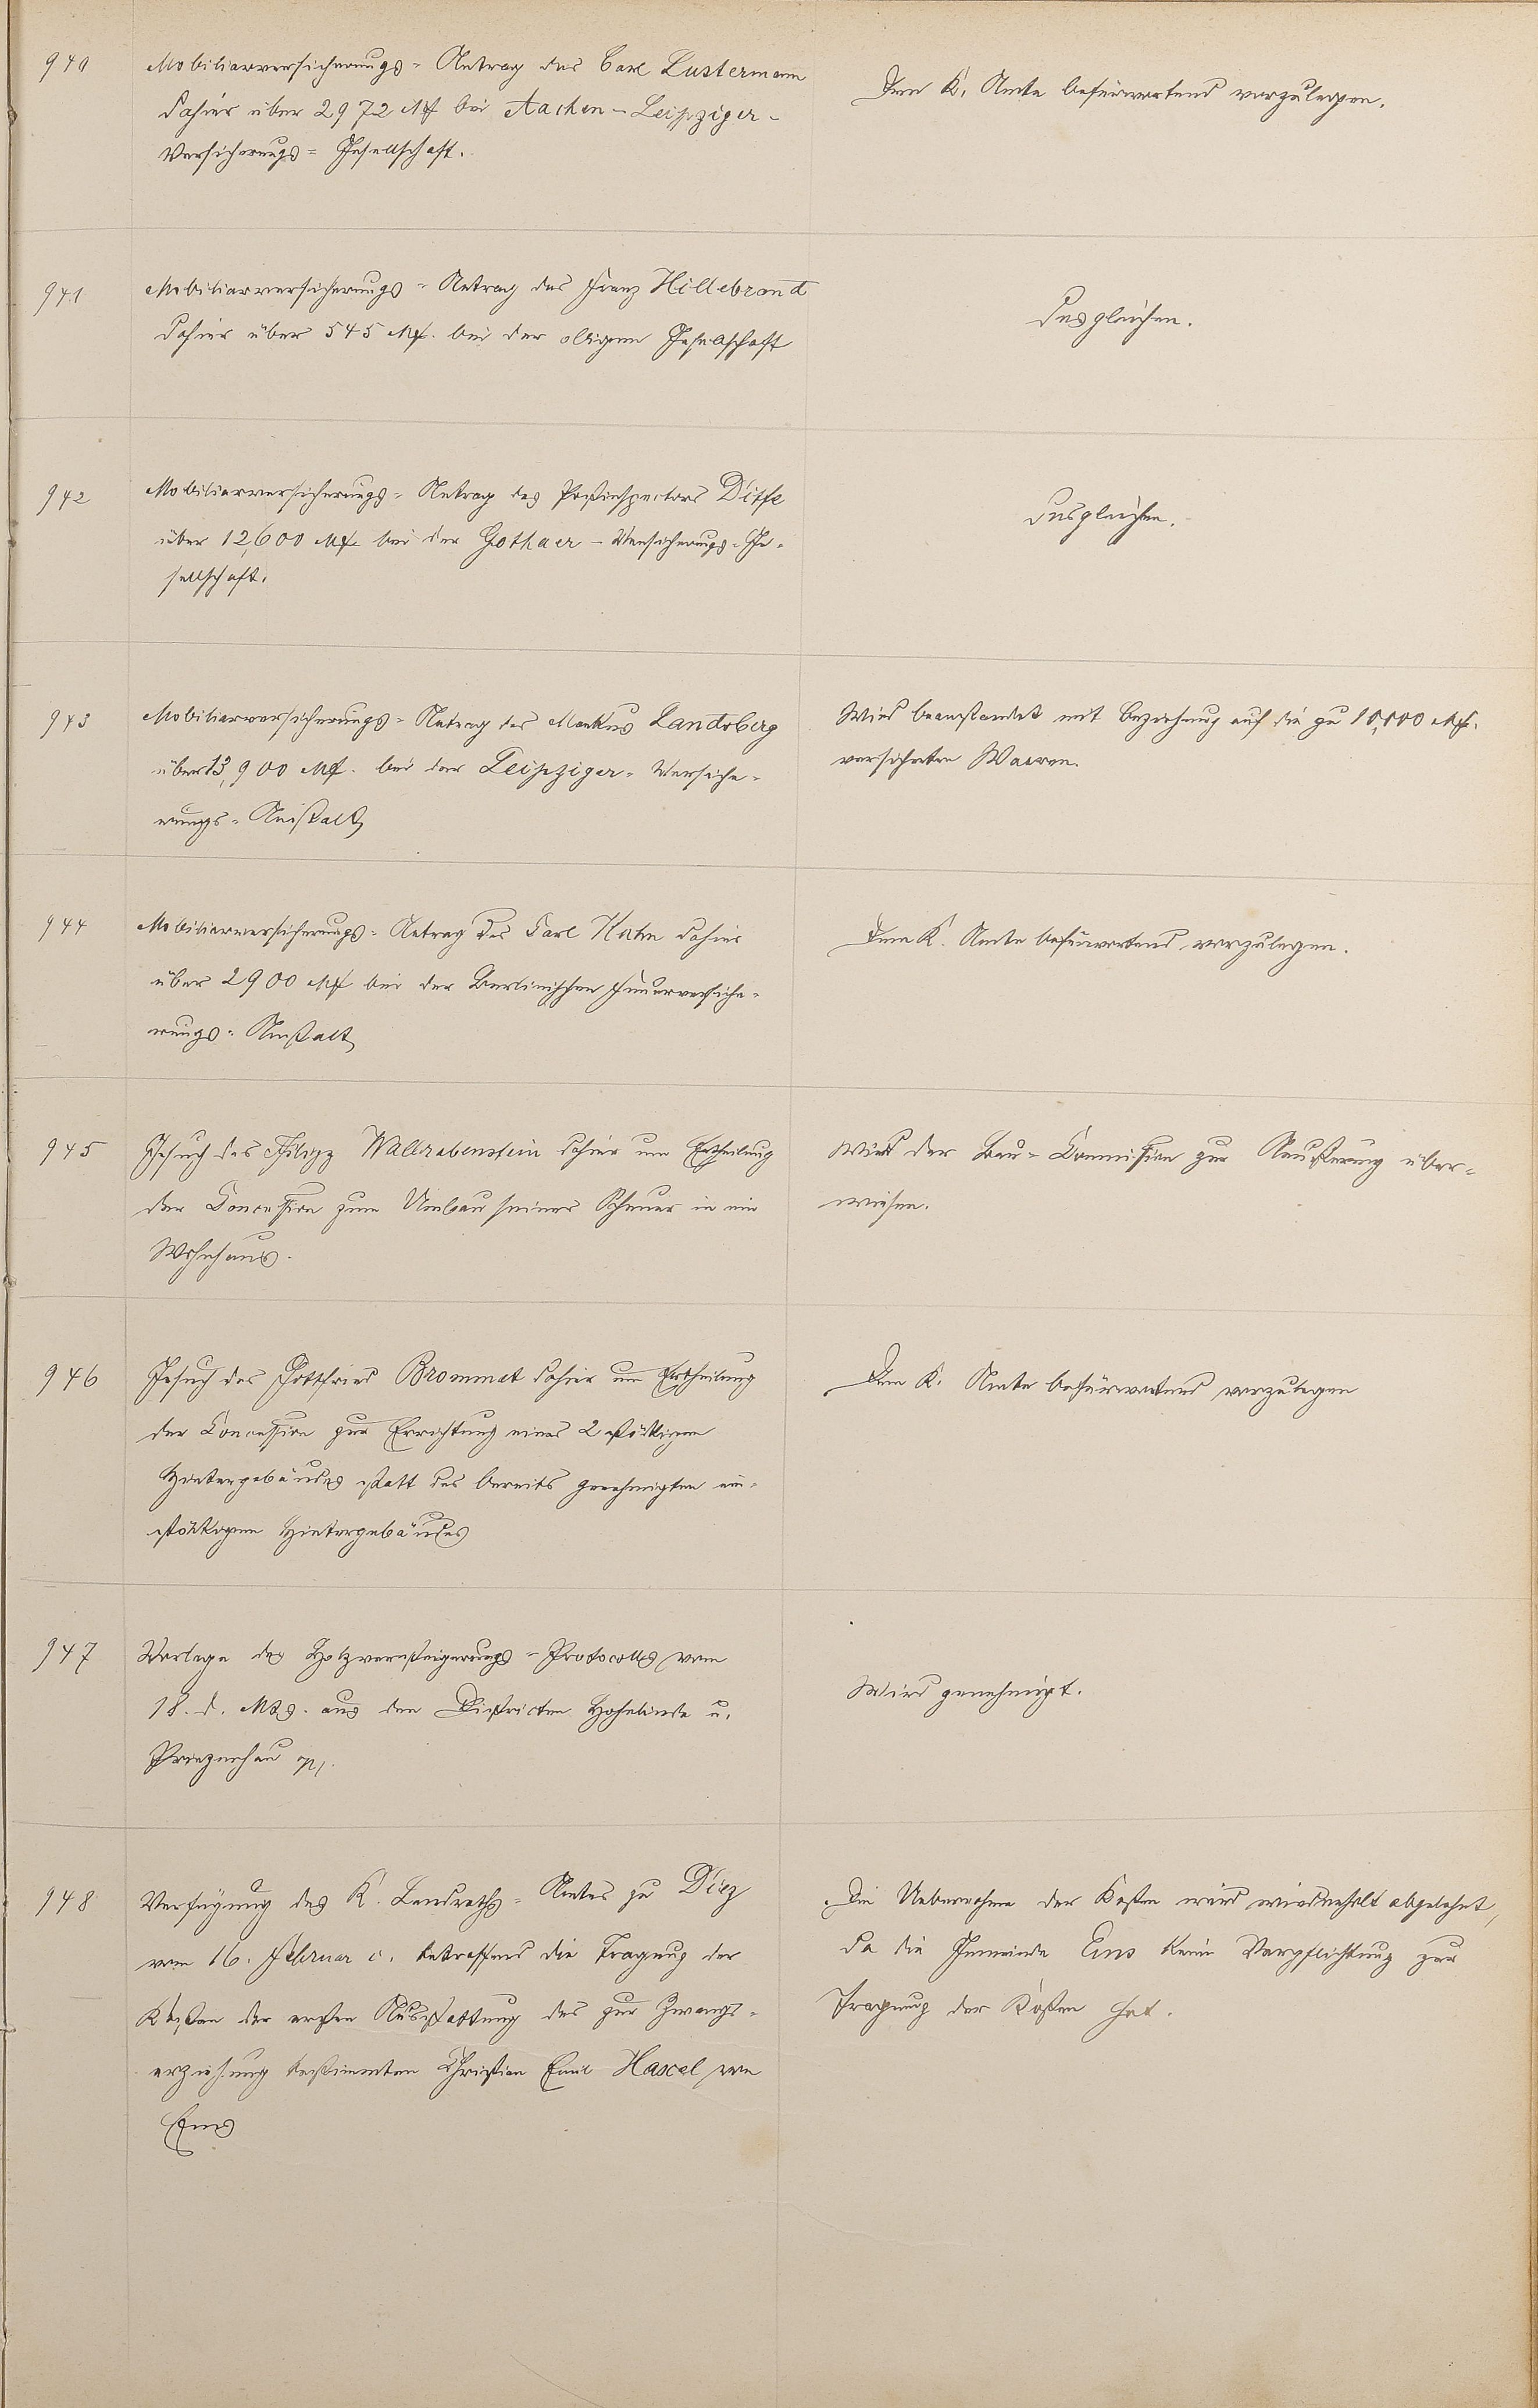 940
Mobiliarversicherungs= Antrag des Carl Lustermann
dahier über 2972 Mk bei Aachen-Leipziger-
Versicherungs= Gesellschaft.
Dem K. Amte befürwortend vorzulegen.
941
Mobiliarversicherungs= Antrag des Franz Hillebrand
dahier über 545 Mk. bei der obigen Gesellschaft
Desgleichen.
942
Mobiliarversicherungs= Antrag des Postinspectors Ditfe
über 12,600 Mk bei der Gothaer-Versicherungs-Ge=
sellschaft.
Desgleichen.
943
Mobiliarversicherungs= Antrag des Markus Landsberg
über 13,900 Mk. bei der Leipziger= Versiche=
rungs= Anstalt
Wird beanstandet mit Beziehung auf die zu 10,000 Mk.
versicherten Waaren.
944
Mobiliarversicherungs= Antrag des Carl Kahn dahier
über 2900 Mk bei der Berlinischen Feuerversiche=
rungs= Anstalt
Dem K. Amte befürwortend vorzulegen.
945
Gesuch des Philipp Wallrabenstein dahier um Ertheilung
der Concession zum Umbau seiner Scheuer in ein
Wohnhaus.
Wird der Bau= Commission zur Aeußerung über=
wiesen.
946
Gesuch des Gottfried Brommet dahier um Ertheilung
der Concession zur Errichtung eines 2 stöckigen
Hintergebäudes statt des bereits genehmigten ein=
stöckigen Hintergebäudes
Dem K. Amte befürwortend vorzulegen
947
Vorlage des Holzversteigerungs= Protocolls vom
18. d. Mts. aus den Districten Hohelinde u.
Wird genehmigt.
948
Verfügung des K. Landraths= Amtes zu Diez
vom 16. Februar c. betreffend die Tragung der
Kosten der ersten Ausstattung des zur Zwangs=
erziehung bestimmten Christian Emil Hascel von
Ems
Die Uebernahme der Kosten wird wiederholt abgelehnt,
da die Gemeinde Ems keine Verpflichtung zur
Tragung der Kosten hat.